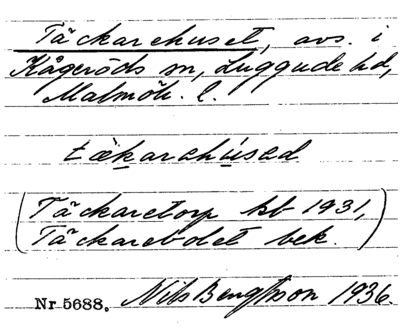 Täckarehuset, avs. i
Kågeröds sn, Luggude hd,
Malmöh. l.
tækarahúsad
(Täckaretorp kb 1931,
Täckarebolet bek.)
Nr 5688. Nils Bengtsson 1936.